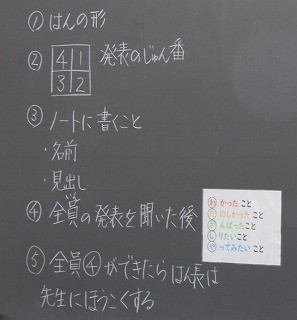 ① はんの形
② 4 1 発表のじゅん番
3 2
③ ノートに書くこと
・名前
・見出し
④ 全員の発表を聞いた後
わかった こと
たのしかった こと
がんばった こと
しりたい こと
やってみたい こと
⑤ 全員④ができたら はん長は
先生にほうこくする